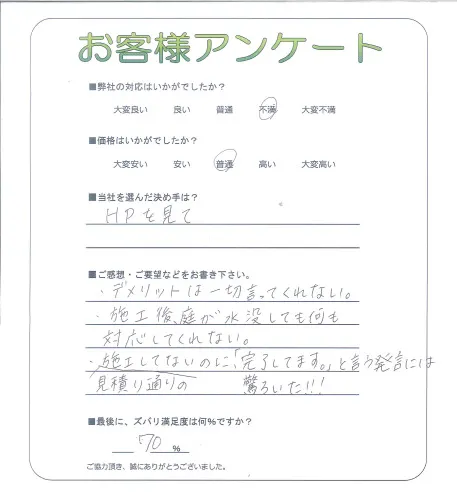 お客様アンケート
■弊社の対応はいかがでしたか？
大変良い 良い 普通 不満 大変不満
■価格はいかがでしたか？
大変安い 安い 普通 高い 大変高い
■当社を選んだ決め手は？
HPを見て
■ご感想・ご要望などをお書き下さい。
・デメリットは一切言ってくれない。
・施工後、庭が水没しても何も
対応してくれない。
・施工してないのに、「完了してます。」と言う発言には
見積り通りの 驚ろいた!!!
■最後に、ズバリ満足度は何%ですか？
70 %
ご協力頂き、誠にありがとうございました。